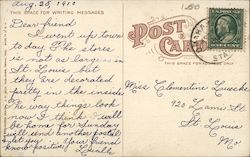 Aug. 25, 1910
THIS SPACE FOR WRITING MESSAGES
Dear friend
I went up town
to day. The stores
is not as large as in
St. Louis but
they are decorated
pretty in the inside
The way things look
now I think I will
be home for Sunday
will send another postal
let you
know positive
Your friend
POST CARD
THIS SPACE FOR ADDRESS ONLY
Miss Clementine Luecke
920 Lami St
St. Louis
Mo